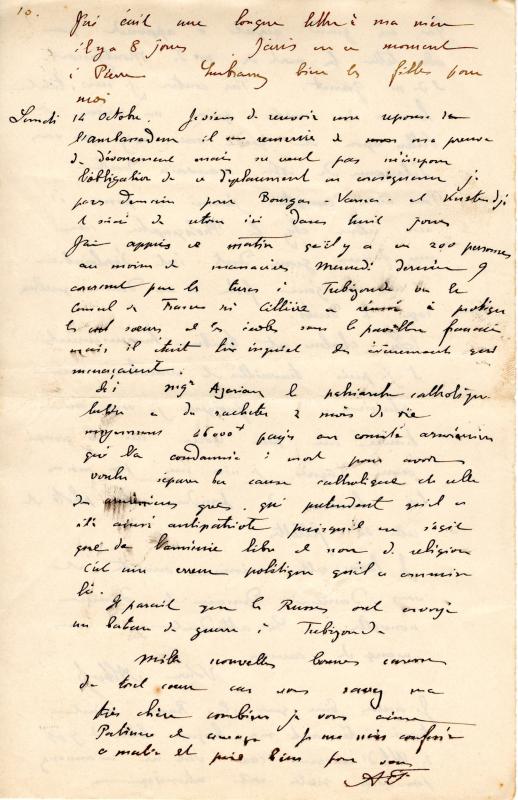 10.
J'ai écrit une longue lettre à ma mère
il y a 8 jours J'écris en ce moment
à Pierre Embrassez bien les filles pour
moi
Samedi 14 Octobre. Je viens de recevoir une réponse de
l'ambassadeur il me remercie de ma preuve
de dévouement mais ne veut pas m'imposer
l'obligation de ce déplacement en conséquence je
pars demain pour Bourgas - Varna - et Kustendjé
et serai de retour ici dans huit jours
J'ai appris ce matin qu'il y a eu 200 personnes
au moins de massacrées Mercredi dernier 9
courant par les turcs à Trébizonde où le
Consul de France Mr Cillière a réussi à protéger
les soeurs et les écoles sous le pavillon français
mais il était très inquiet des évènements qui
menaçaient.
Ici Mgr Azarian le patriarche catholique
a du racheter 2 mois de vie
moyennant 16000f payés au comité arménien
qui l'a condamné à mort pour avoir
voulu séparer la cause catholique et celle
des arméniens grég. qui prétendent qu'il a
été ainsi antipatriote puisqu'il ne s'agit
que de l'arménie libre et non de religion
C'est une erreur politique qu'il a commise
là.
Il paraît que les Russes ont envoyé
un bateau de guerre à Trébizonde
Mille nouvelles bonnes caresses
de tout coeur car vous savez ma
très chère combien je vous aime
Patience et courage Je me suis confessé
ce matin et prié bien pour vous
AF